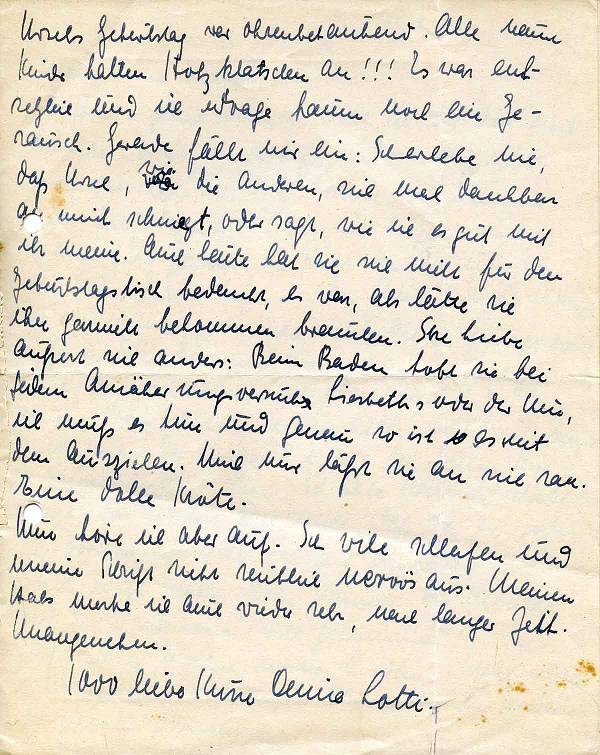 Ursels Geburtstag war ohrenbetäubend. Alle neun
Kinder hatten Holzklatschen an!!! Es war ent-
setzlich und ich ertrage kaum noch ein Ge-
räusch. Gerade fällt mir ein: Ich erlebe nie,
daß Ursel, wie die anderen, sich mal dankbar
an mich schmiegt, oder sagt, wie sie es gut mit
ihr meine. Auch heute hat sie sich nicht für den
Geburtstagstisch bedankt, es war, als hätte sie
ihn garnicht bekommen brauchen. Ihre Liebe
äußert sich anders: Beim Baden tobt sie bei
jedem Annäherungsversuch Liesbeths oder der
ich muß es tun und genau so ist es mit
dem Ausziehen. Und nur läßt sie an sich ran.
Eine dolle Kröte.
Nun höre ich aber auf. Ich will schlafen und
meine Schrift sieht reichlich nervös aus. Meinen
Hals merke ich auch wieder sehr, nach langer Zeit.
Unangenehm.
1000 liebe Küsse Deine Lotti.